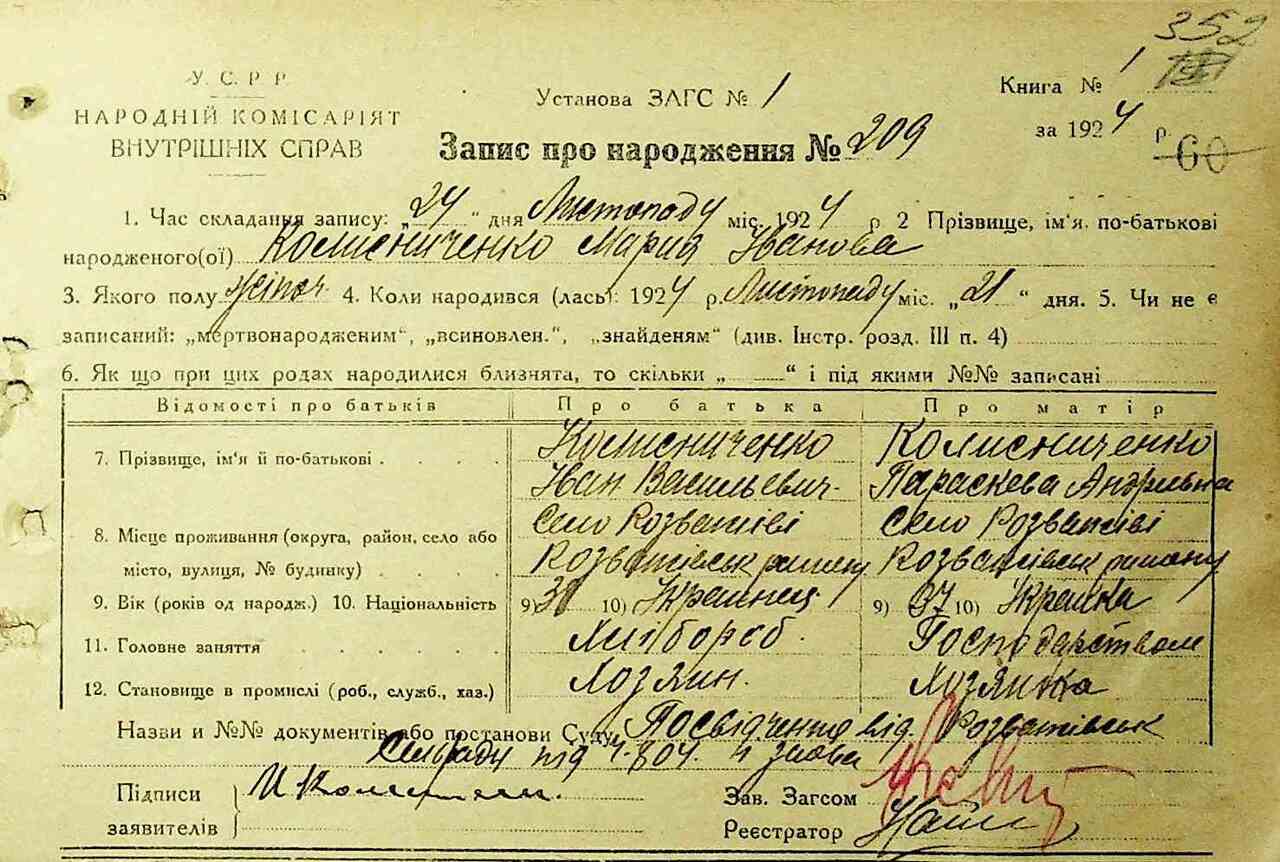 352
У. С. Р Р
НАРОДНІЙ КОМІСАРІЯТ
ВНУТРІШНІХ СПРАВ
Установа ЗАГС № 1
Книга № 1
за 1924 р.
60
Запис про народження № 209
1. Час складання запису: „24“ дня Листопаду міс. 1924 р 2 Прізвище, ім'я. по-батькові
народженого(ої) Колисниченко Мария Іванова
3. Якого полу жіноч 4. Коли народився (лась): 1924 р. Листопаду міс. „21“ дня. 5. Чи не є
записаний: „мертвонародженим“, „всиновлен.“, „знайденям“ (див. Інстр. розд. III п. 4)
6. Як що при цих родах народилися близнята, то скільки „ “ і під якими №№ записані
Відомості про батьків Про батька Про матір
7. Прізвище, ім'я й по-батькові Колисниченко Колисниченко
Іван Васильевич Параскева Андриевна
8. Місце проживання (округа, район, село або село Розважіві село Розважіві
місто, вулиця, № будинку) Розважівськ району Розважівськ району
9. Вік (років од народж.) 10. Національність 9) 38 10) Украинец 9) 37 10) Украинка
11. Головне заняття Хлібороб. Господарством
12. Становище в промислі (роб., служб., хаз.) Хозяин. Хозяйка
Назви и №№ документів або постанови Суду Посвідчення від Розважівськ
Сельради під ч. 804. и заява
Підписи
заявителів
И Колисни
Зав. Загсом
Реєстратор